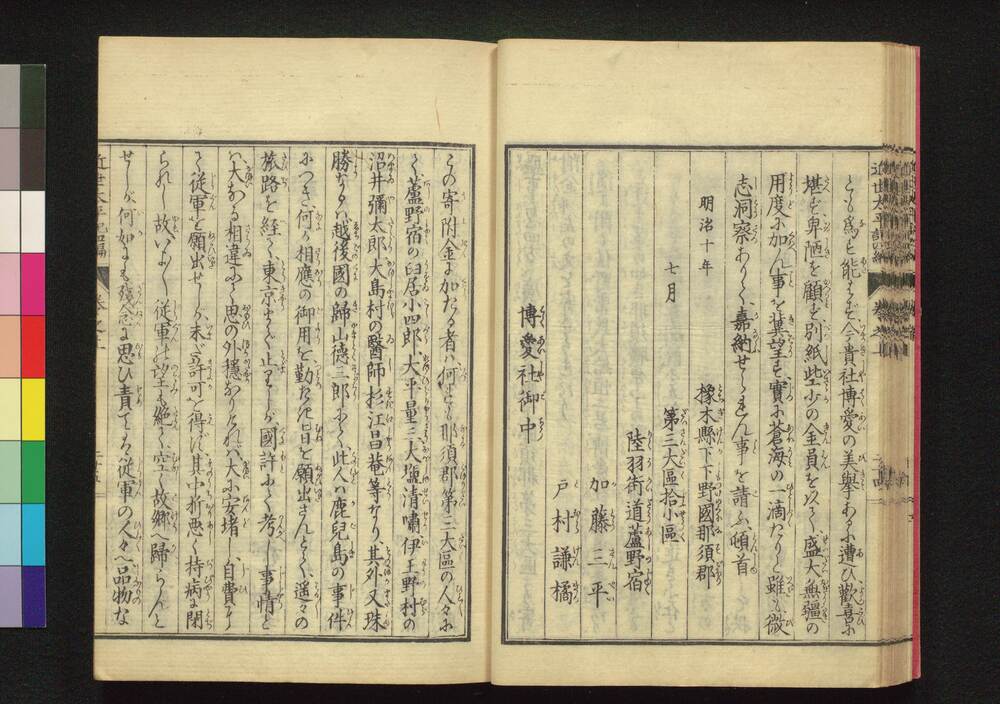 とも爲こと能はず今貴社博愛の美擧あるに遭ひ歡喜に
堪ず卑陋を顧ず別紙些少の金員を以て盛大無疆の
用度に加へん事を冀望す實に蒼海の一滴たりと雖も微
志洞察ありて嘉納せられん事を請ふ頓首
明治十年
七月
橡木縣下下野國那須郡
第三大區拾小區
陸羽街道蘆野宿
加藤三平
戸村謙橘
博愛社御中
この寄附金に加たる者ハ何れも那須郡第三大區の人々に
て蘆野宿の臼居小四郎大平量三大鹽清嘯伊王野村の
沼井彌太郎大島村の醫師杉江昌菴等なり其外又珠
勝なるハ越後國の歸山德三郎にて此人ハ鹿兒島の事件
につき何か相應の御用を勤たき旨を願出さんとて遙々の
旅路を經て東京まで止りしが國許にて考へし事情と
ハ大なる相違にて思の外穩なりけれハ大に安堵し自費にて
て從軍を願出せしが未だ許可を得ず其中折悪く持病に閉
られし故いよ〱從軍の望も絶て空く故郷へ歸らんと
せしが何如にも殘念に思ひ責てハ從軍の人々へ品物な
近世太平記二編